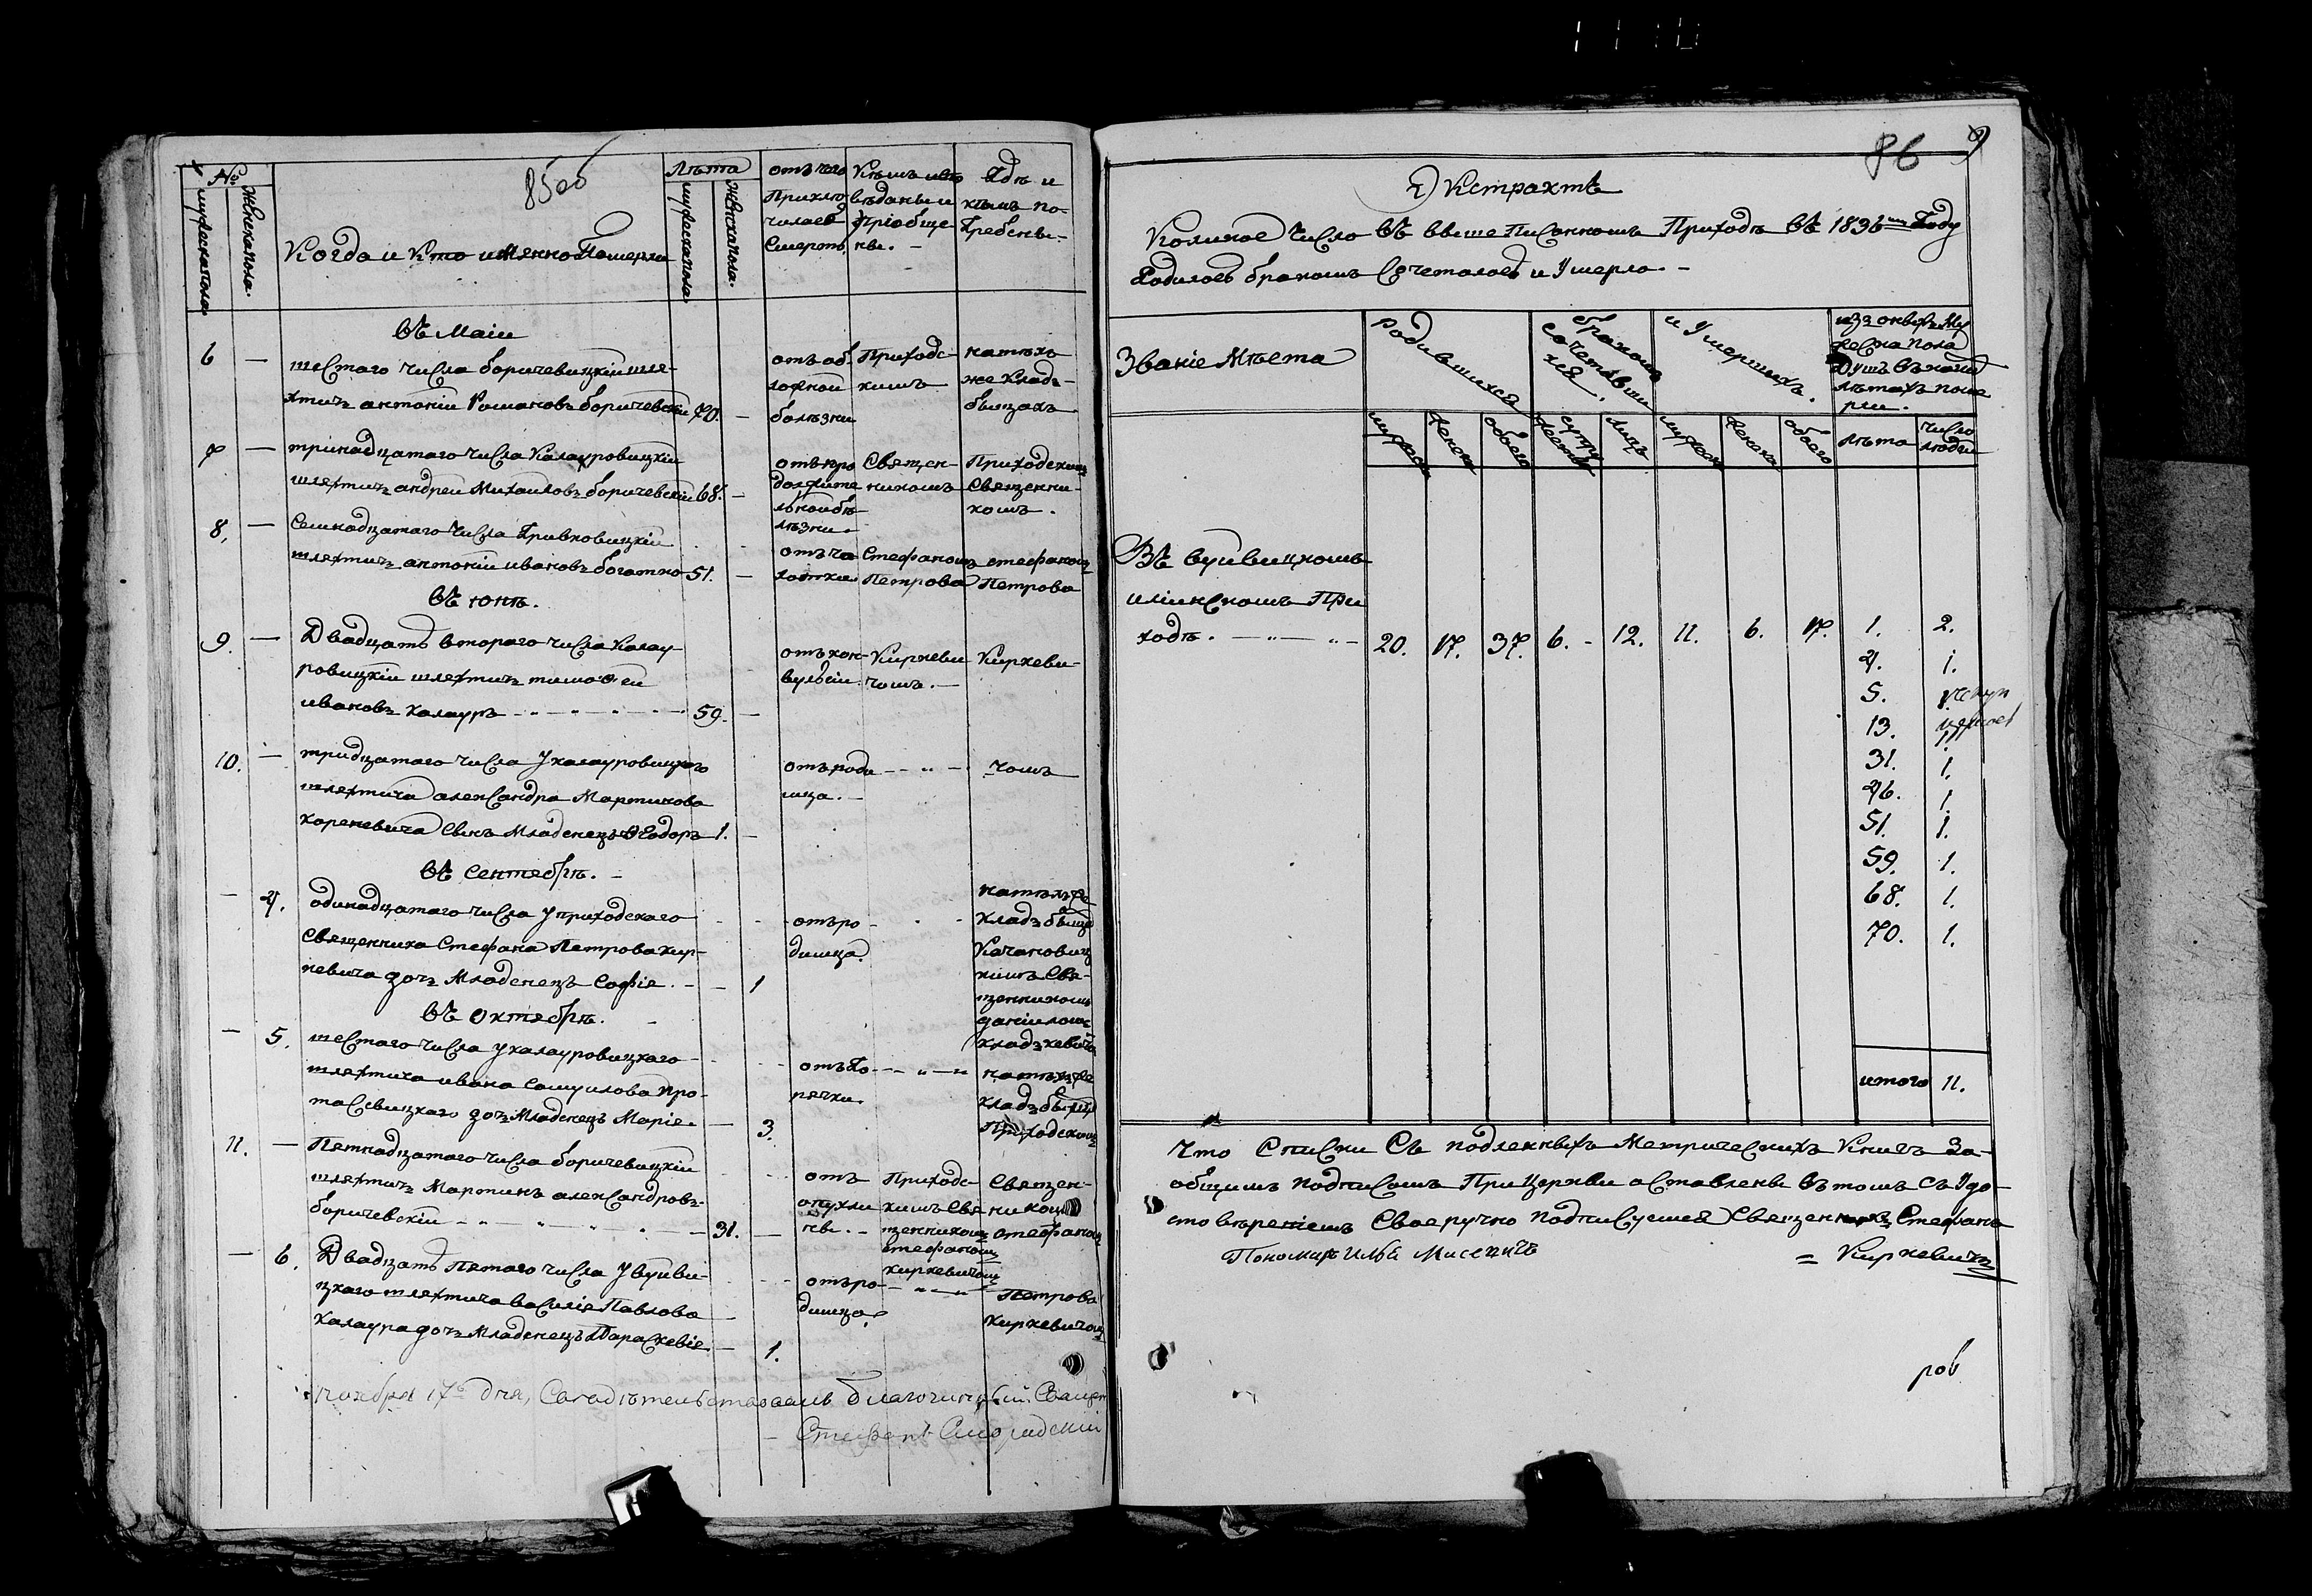 85об
№
мужеска пола
женска пола.
Когда и кто именно Померли
Лѣта
мужеска пола
женска пола.
отъ чего
Приклю
чилась
смерть.
Кѣмъ испо
вѣданы и
Пріобще
ны. -
Гдѣ и
кѣмъ по-
гребены.
въ Маіи
6 — шестаго числа боричевицкій шля-
хтичъ антоній Романовъ боричевскій 70. —
отъ об.
ложной
болѣзни
Приходс-
кимъ
на тѣхъ
же кладъ-
бищахъ
7 — тринадцатаго числа Калауровицкій
шляхтичъ андрей Михаиловъ боричевскій 68. —
отъ про
должите
льной бо-
лѣзни.
Священ-
никомъ
Приходскимъ
Священни-
комъ.
8. — Семнадцатаго числа Гривковицкій
шляхтичъ антоній ивановъ богатко 51. —
отъ ча
хотки
Стефаномъ
Петрова
стефаномъ
Петрова
въ юнѣ.
9. — Двадцать втораго числа Калау-
ровицкій шляхтичъ тимоѳей
ивановъ Калауръ 59. —
отъ кон-
вульсіи.
Киркеви
чомъ. —
Киркеви-
10. — тридцатаго числа У калауровицкаго
шляхтича александра Мартинова
кореневича сынъ младенецъ Ѳеодоръ 1. —
отъ роди
мца. —
чомъ
въ сентябрѣ. -
- 4. одинадцатаго числа У приходскаго
Священника Стефана Петрова кир-
кевича дочь младенецъ Софія. - — 1
отъ ро-
димца.
на тѣхъ же
кладъбище
Качановиц
кимъ Свя-
щенникомъ
даніиломъ
кладкевичо
въ октябрѣ.
- 5. шестаго числа У калауровицкаго
шляхтича ивана самуилова про-
тасевицкаго дочь младенецъ Марія. — 3.
отъ го-
рячки.
на тѣхъ же
кладъбище
Приходскимъ
11. — Пятнадцатаго числа боричевицкій
шляхтичъ Мартинъ александровъ-
боричевскій 31. —
отъ
опухли
ны. -
Приходс-
кимъ Свя
щенникомъ
стефаномъ
киркевичомъ
Священ-
никомъ
стефаномъ
— 6. Двадцать Пятаго числа У вуйви-
цкаго шляхтича василія Павлова
Калаура дочь младенецъ Параскевія. — 1.
отъ ро-
димца.
Петрова
киркевичомъ
ноября 17го дня, Свидѣтельствовалъ благочинный Свящ
- Стефанъ
86
9
Экстрактъ
Коликое число въ выше писанномъ Приходѣ въ 1836мъ Году
Родилось бракомъ сочеталось и Умерло. -
Званіе Мѣста
Родившихся
бракомъ
сочетавши
хся.
и Умершихъ.
изъ оныхъ Му
жеска пола
душъ въ какихъ
лѣтахъ поме
рли.
мужеск
женск
обоего
супру
жествъ
лицъ
мужеск
женска
обоего
лѣта
число
людей
Въ вуйвицкомъ
иліинскомъ При
ходѣ. 20. 17. 37. 6. - 12. 11. 6. 17. 1. 2.
4. 1.
5.
13.
31. 1.
46. 1.
51. 1.
59. 1.
68. 1.
70. 1.
итого 11.
Что Списки Съ подленныхъ Метрическихъ Книгъ За-
общимъ подписомъ При Церкви оставлены въ томъ съ Удо-
стовѣреніемъ Своеручно подписуемся Священникъ Стефанъ
Пономарь Илья = Киркевичъ